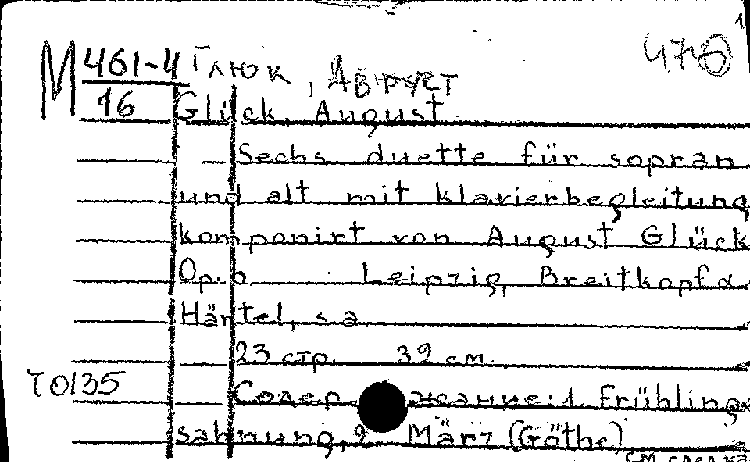 М 461-4 Глюк, Август
16 Glück, August
Sechs duette für sopran
und alt mit klavierbegleitung
komponirt von August Glück
Op. Leipzig, Breitkopf d.
Härtel, s a
23 стр. 32 cm.
ТО135 Содержание: 1 Frühlings
sahnung, 2 März (Göthe)